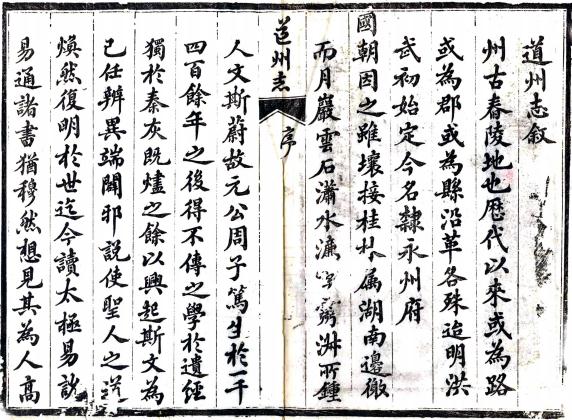 道州志敘
州古舂陵地也歷代以來或為路
或為郡或為縣沿革各殊迨明洪
武初始定今名隸永州府
國朝因之雖壤接桂林屬湖南邊徼
而月巖雲石瀟水濂淵所鍾
道州志
序
人文斯蔚故元公周子篤生於一千
四百餘年之後得不傳之學於遺經
獨於秦灰既燼之餘以興起斯文為
己任辨異端闢邪說使聖人之道
煥然復明於世迄今讀太極易說
易通諸書猶穆然想見其為人高